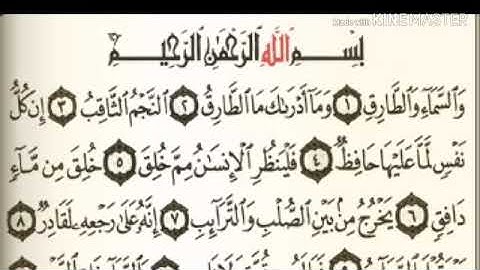 Made with KINEMASTER
بِسْمِ ٱللَّهِ ٱلرَّحْمَٰنِ ٱلرَّحِيمِ
وَٱلسَّمَآءِ وَٱلطَّارِقِ ١ وَمَآ أَدْرَىٰكَ مَا ٱلطَّارِقُ ٢ ٱلنَّجْمُ ٱلثَّاقِبُ ٣ إِن كُلُّ
نَفْسٍ لَّمَّا عَلَيْهَا حَافِظٌ ٤ فَلْيَنظُرِ ٱلْإِنسَٰنُ مِمَّ خُلِقَ ٥ خُلِقَ مِن مَّآءٍ
دَافِقٍ ٦ يَخْرُجُ مِنۢ بَيْنِ ٱلصُّلْبِ وَٱلتَّرَآئِبِ ٧ إِنَّهُۥ عَلَىٰ رَجْعِهِۦ لَقَادِرٌ ٨